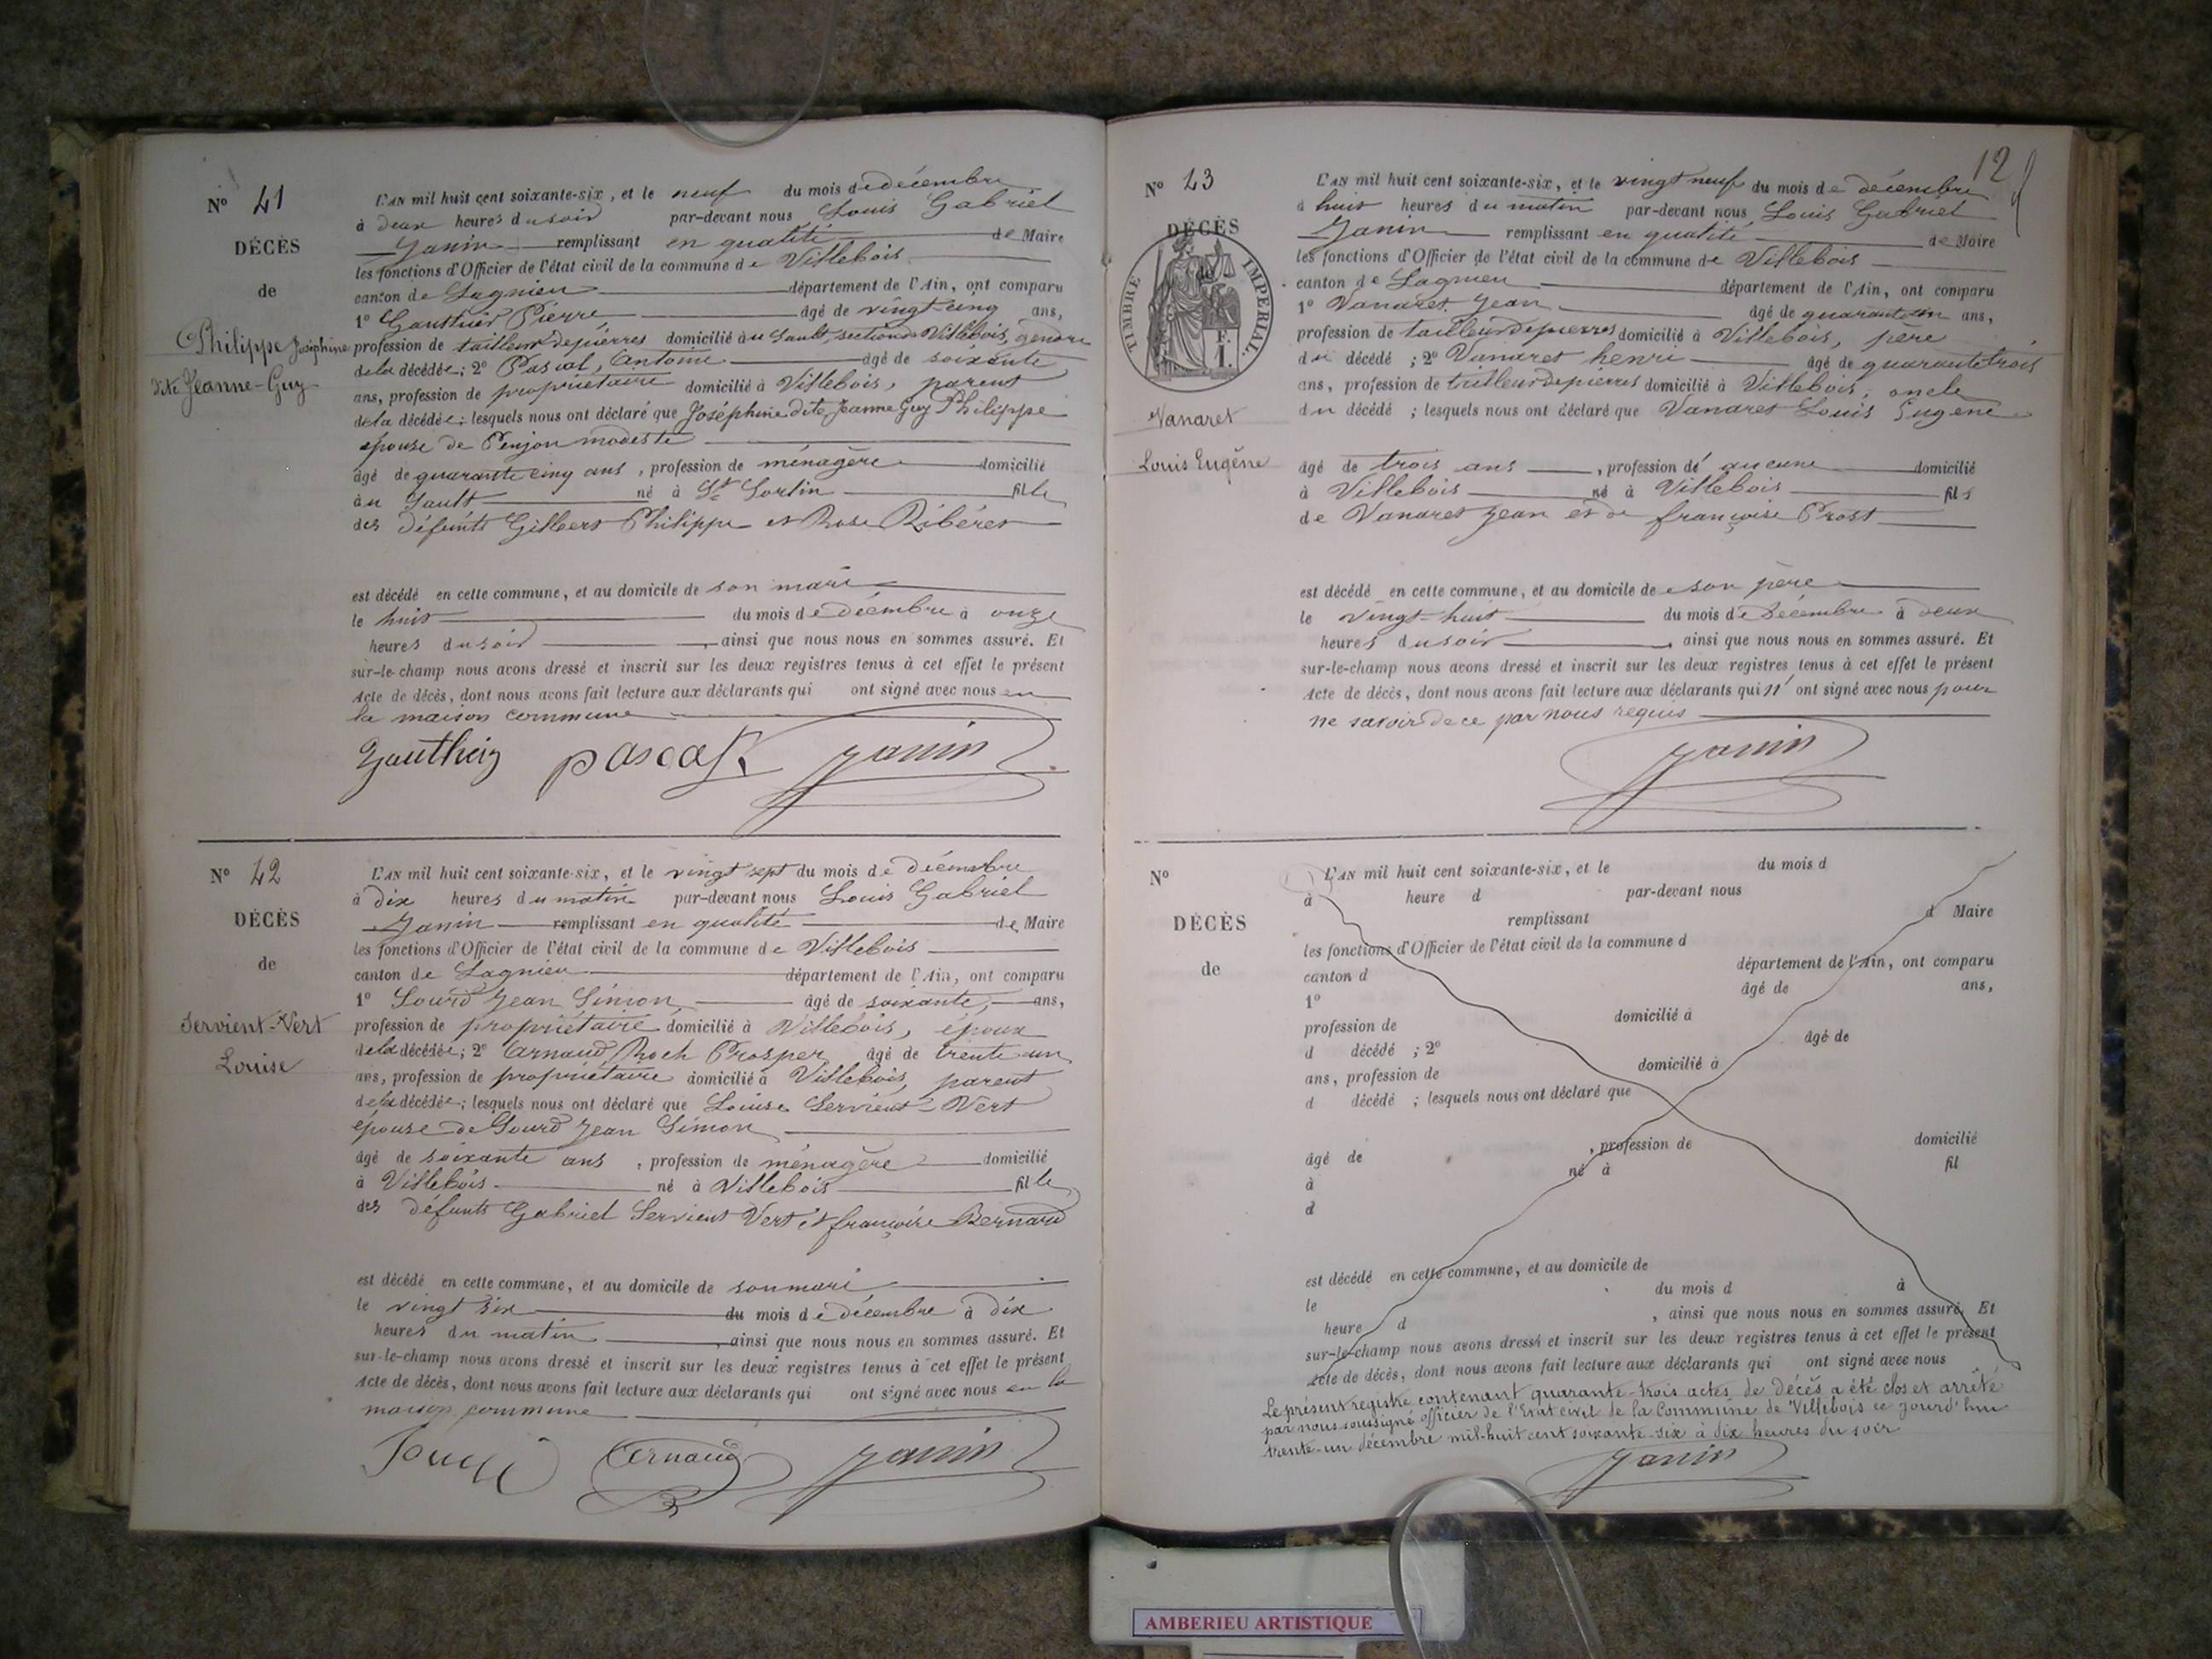 N° 41
DÉCÈS
de
Philippe Joséphine
dite Jeanne-Guy
L'AN mil huit cent soixante-six, et le neuf du mois de décembre
à deux heures du soir par-devant nous Louis Gabriel
Janin remplissant en qualité de Maire
les fonctions d'Officier de l'état civil de la commune de Villebois
canton de Lagnieu département de l'Ain, ont comparu
1° Gauthier Pierre âgé de vingt-cinq ans,
profession de tailleur de pierres domicilié au Sault, section de Villebois, gendre
de la décédée; 2° Pascal, Antoine âgé de soixante
ans, profession de propriétaire domicilié à Villebois, parent
de la décédée; lesquels nous ont déclaré que Joséphine dite Jeanne Guy Philippe
épouse de Penjon modeste
âgé de quarante cinq ans, profession de ménagère domicilié
au Sault né à St Sorlin fille
des défunts Gilbert Philippe et Rose Ribéret
est décédé en cette commune, et au domicile de son mari
le huit du mois de décembre à onze
heures du soir, ainsi que nous nous en sommes assuré. Et
sur-le-champ nous avons dressé et inscrit sur les deux registres tenus à cet effet le présent
Acte de décès, dont nous avons fait lecture aux déclarants qui ont signé avec nous en
la maison commune
Gauthier pascal Janin
N° 42
DÉCÈS
de
Servient-Vert
Louise
L'AN mil huit cent soixante-six, et le vingt sept du mois de décembre
à dix heures du matin par-devant nous Louis Gabriel
Janin remplissant en qualité de Maire
les fonctions d'Officier de l'état civil de la commune de Villebois
canton de Lagnieu département de l'Ain, ont comparu
1° Gourd Jean Simon âgé de soixante, ans,
profession de propriétaire domicilié à Villebois, époux
de la décédée; 2° Arnaud, Roch Prosper âgé de trente un
ans, profession de propriétaire domicilié à Villebois, parent
de la décédée; lesquels nous ont déclaré que Louise Servient-Vert
épouse de Gourd Jean Simon
âgé de soixante ans, profession de ménagère domicilié
à Villebois né à Villebois fille
des défunts Gabriel Servient Vert et françoise Bernard
est décédé en cette commune, et au domicile de son mari
le vingt six du mois de décembre à dix
heures du matin, ainsi que nous nous en sommes assuré. Et
sur-le-champ nous avons dressé et inscrit sur les deux registres tenus à cet effet le présent
Acte de décès, dont nous avons fait lecture aux déclarants qui ont signé avec nous en la
maison commune
Arnaud Janin
12
N° 43
DÉCÈS
de
TIMBRE IMPERIAL.
F.
1.
Vanaret
Louis Eugène
L'AN mil huit cent soixante-six, et le vingt neuf du mois de décembre
à huit heures du matin par-devant nous Louis Gabriel
Janin remplissant en qualité de Maire
les fonctions d'Officier de l'état civil de la commune de Villebois
canton de Lagnieu département de l'Ain, ont comparu
1° Vanaret Jean âgé de quarante un ans,
profession de tailleur de pierres domicilié à Villebois, père
du décédé ; 2° Vanaret henri âgé de quarante trois
ans, profession de tailleur de pierres domicilié à Villebois, oncle
du décédé ; lesquels nous ont déclaré que Vanaret Louis Eugène
âgé de trois ans, profession de aucune domicilié
à Villebois né à Villebois fils
de Vanaret Jean et de françoise Prost
est décédé en cette commune, et au domicile de son père
le vingt-huit du mois de Décembre à deux
heures du soir, ainsi que nous nous en sommes assuré. Et
sur-le-champ nous avons dressé et inscrit sur les deux registres tenus à cet effet le présent
Acte de décès, dont nous avons fait lecture aux déclarants qui n'ont signé avec nous pour
ne savoir de ce par nous requis
Janin
N°
DÉCÈS
de
L'AN mil huit cent soixante-six, et le du mois d
à heure d par-devant nous
remplissant d Maire
les fonctions d'Officier de l'état civil de la commune d
canton d département de l'Ain, ont comparu
1° âgé de ans,
profession de domicilié à
d décédé ; 2° âgé de
ans, profession de domicilié à
d décédé ; lesquels nous ont déclaré que
âgé de , profession de domicilié
à né à fil
d
est décédé en cette commune, et au domicile de
le du mois d à
heure d , ainsi que nous nous en sommes assuré. Et
sur-le-champ nous avons dressé et inscrit sur les deux registres tenus à cet effet le présent
Acte de décès, dont nous avons fait lecture aux déclarants qui ont signé avec nous
Le présent registre contenant quarante-trois actes de décès a été clos et arrêté
par nous soussigné officier de l'Etat civil de la Commune de Villebois ce jourd'hui
trente-un décembre mil-huit cent soixante-six à dix heures du soir
Janin
AMBERIEU ARTISTIQUE